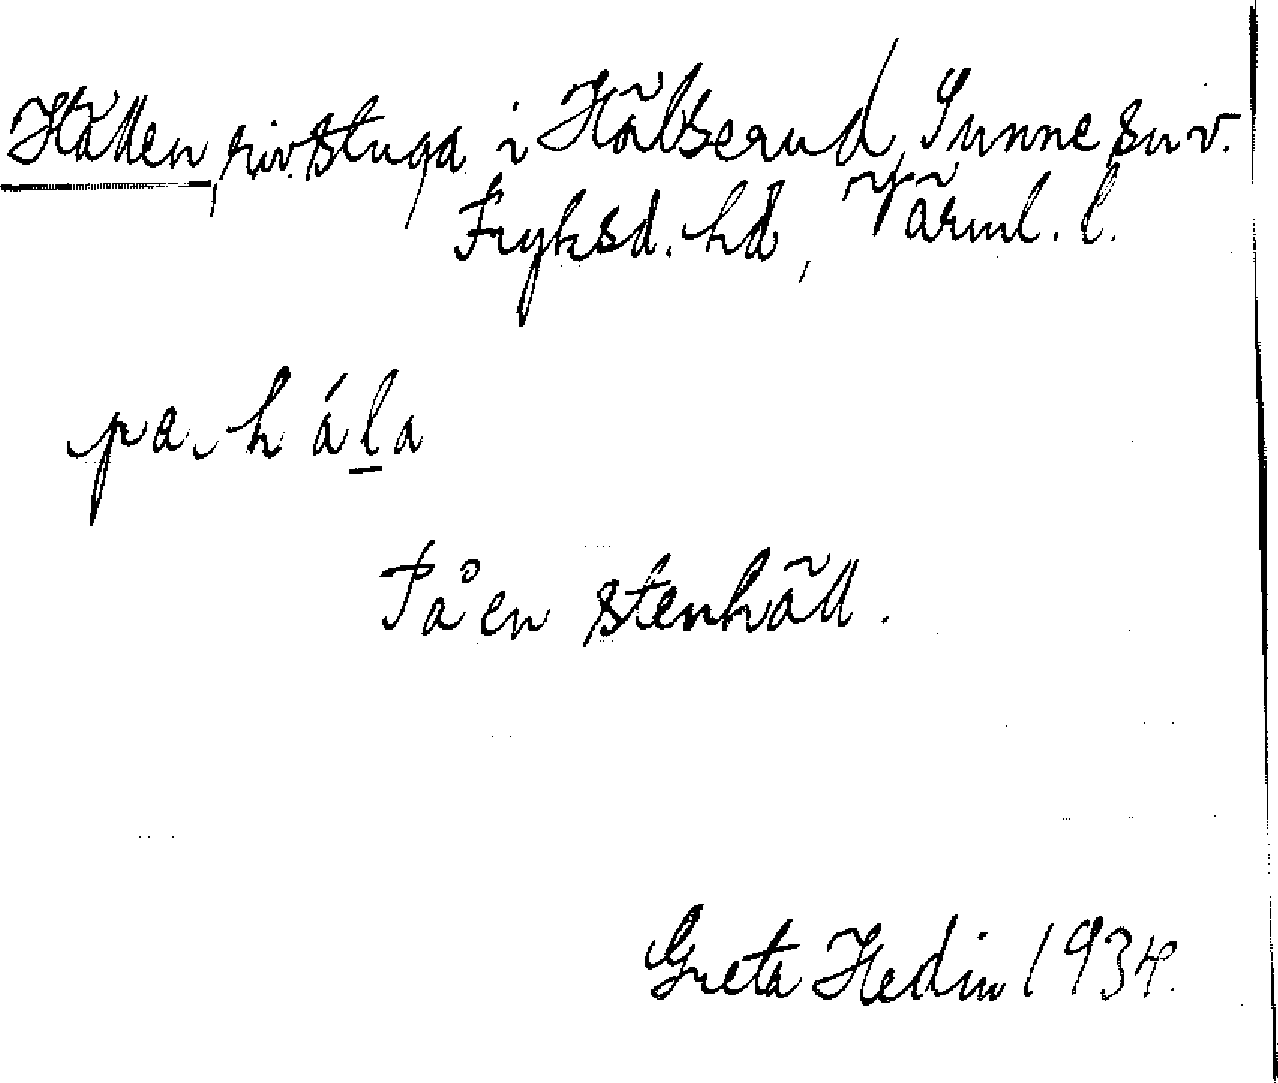 Hällen, riv. stuga i Hälserud, Sunne sn v.
Fryksd. hd, Värml. l.
pa h ála
På en stenhäll.
Greta Hedin 1934.